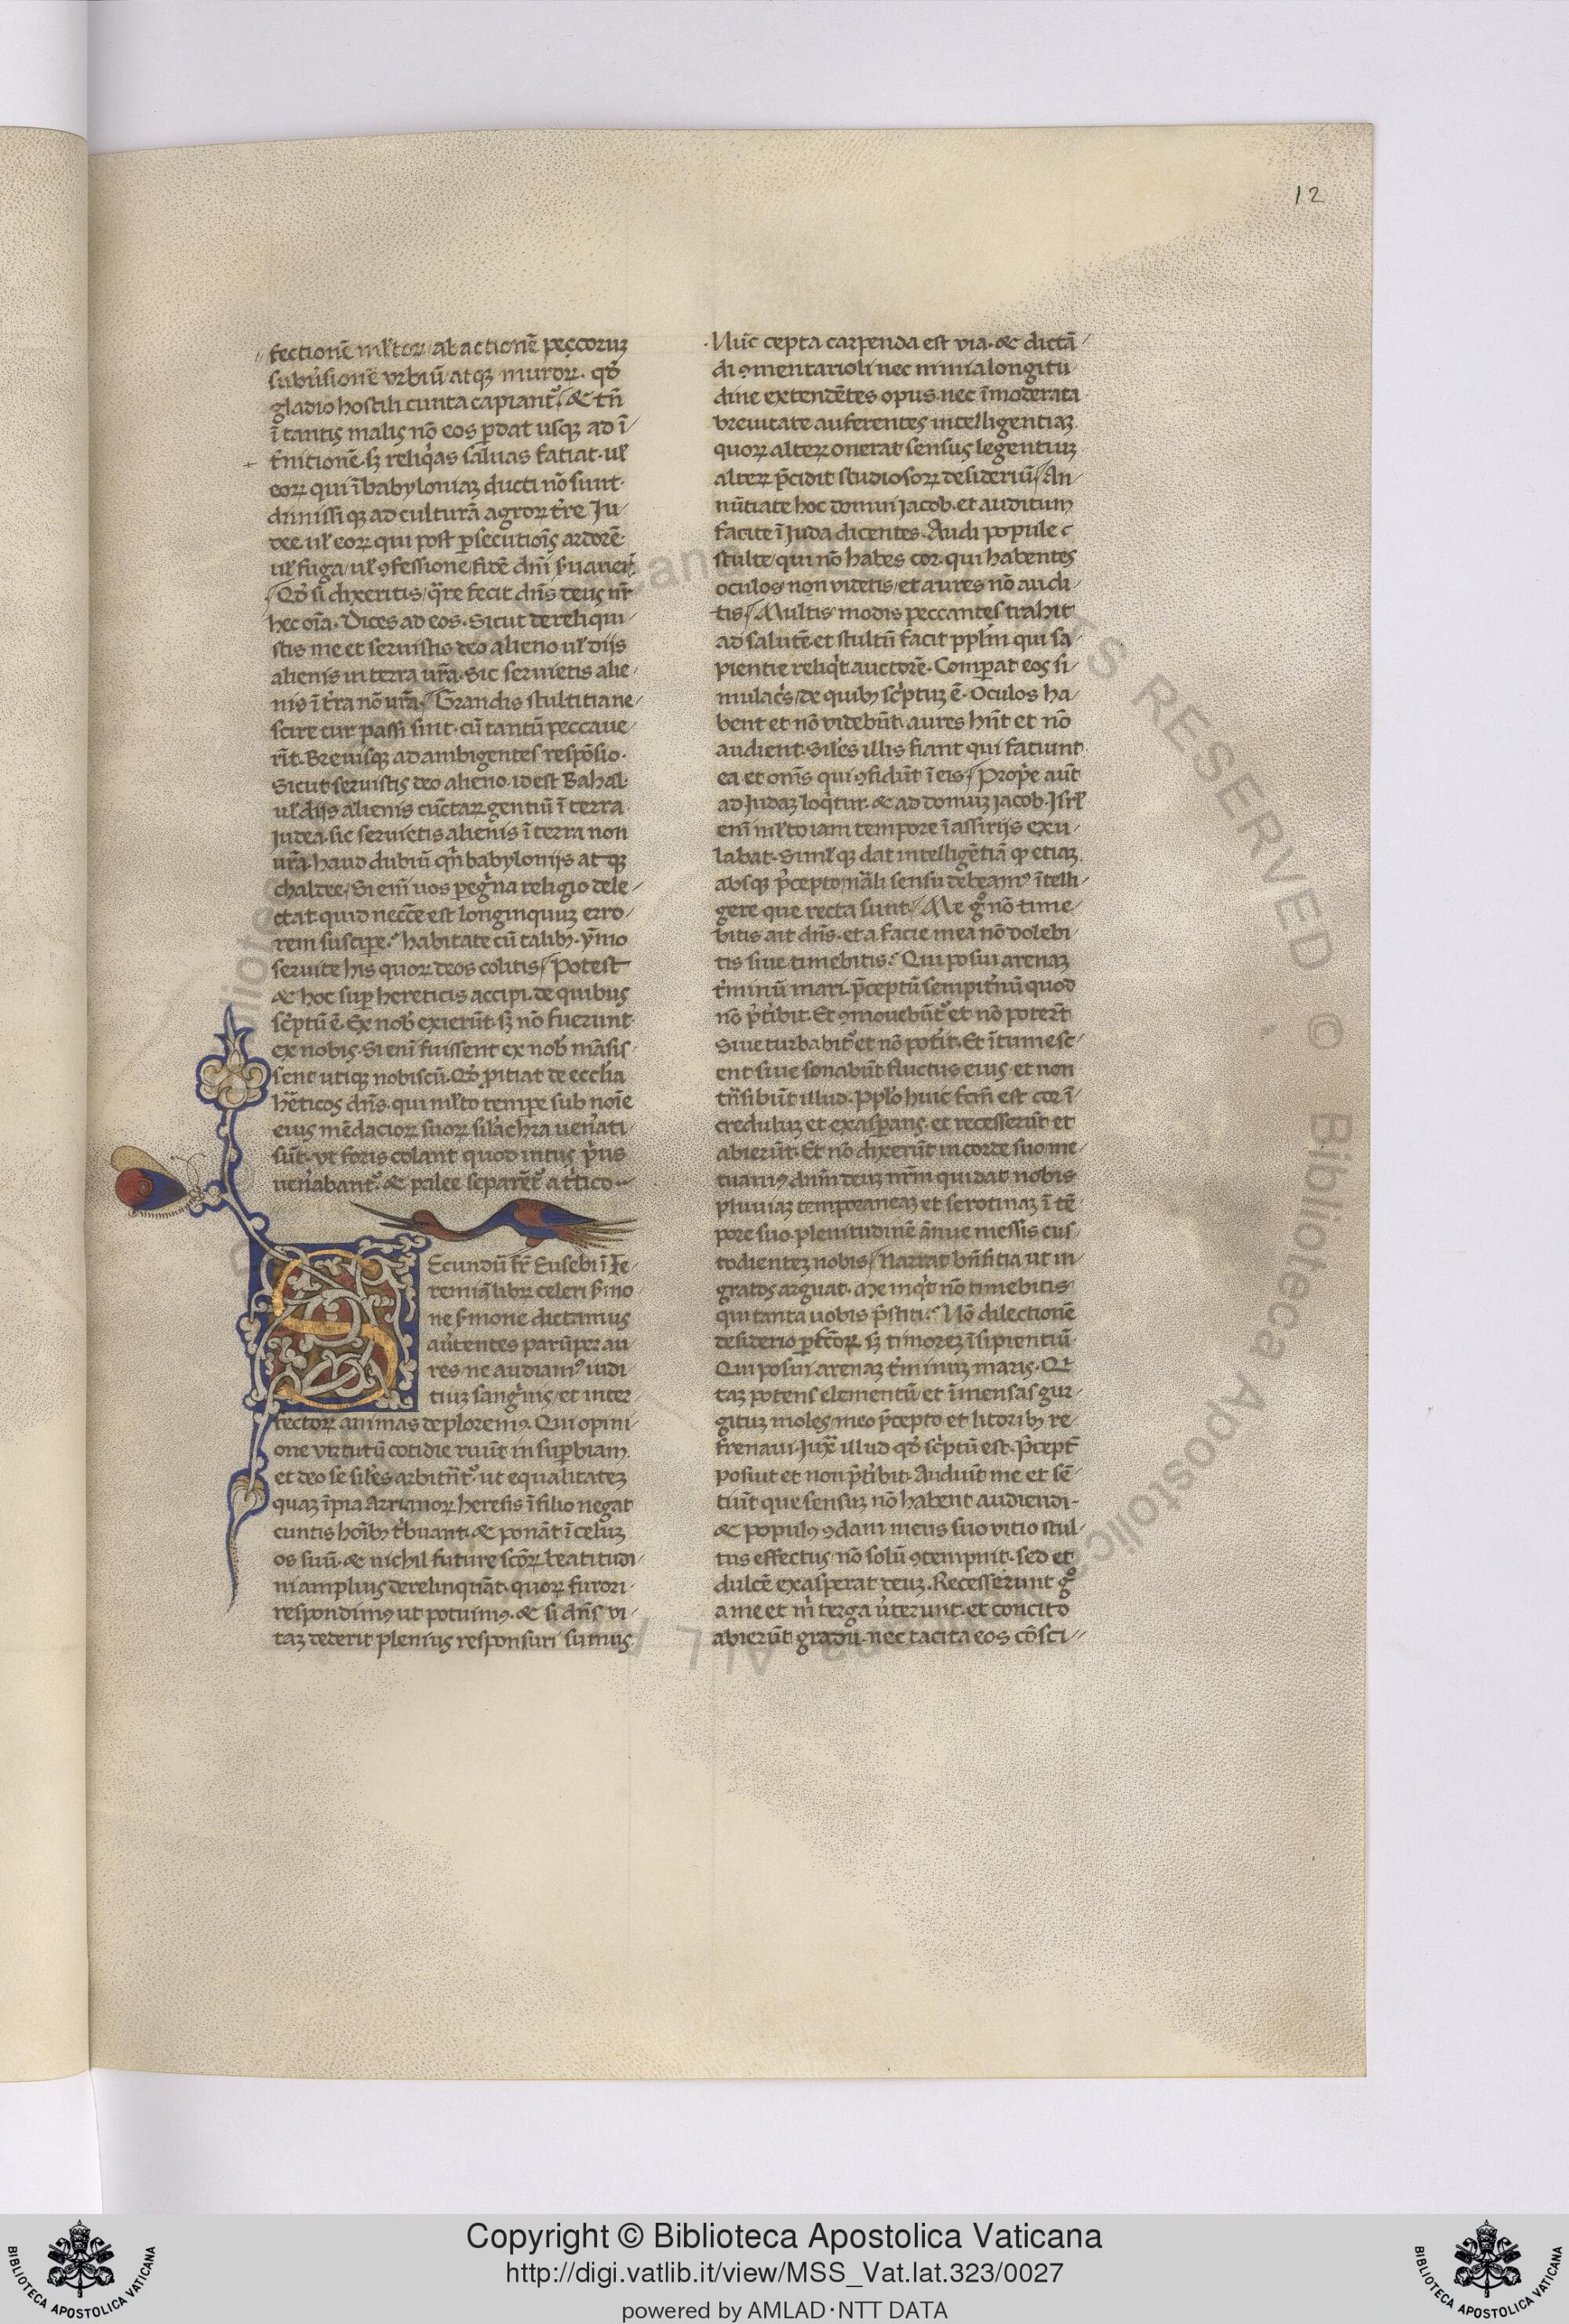 12
fectionē ml'toꝝ / abactionē peccoruꝫ
subũsionē vrbiũ atqꝫ muroꝝ. qđ
gladio hostili cunta capiantᷣ. & tñ
ī tantis malis nō eos ꝑdat usqꝫ ad ī
t̾nitionē. sꝫ reliqᷤas saluas fatiat. ul'
eoꝝ qui ī babyloniaꝫ ducti nō sunt.
dimissiqꝫ ad culturā agroꝝ t̾re Ju
dee. ul' eoꝝ qui post ꝑsecutiōis ardorē
ul' fuga / ul' ꝯfessione / fidē dñi
Qđ si dixeritis / q̄re fecit dñs deus nr̄
hec oīa. Dices ad eos. Sicut dereliqui
stis me et seruistis deo alieno ul' dijs
alienis in terra ur̄a. Sic seruietis alie
nis ī t̾ra nō ur̄a. Grandis stultitia ne
scire cur passi sint. cũ tantũ peccaue
rīt. Breuisqꝫ ad ambigentes respōsio.
Sicut seruistis deo alieno. id est Bahal
ul' dijs alienis cũctaꝝ gentiũ ī terra
Iudea. sic seruietis alienis ī terra non
ur̄a. haud dubiũ qn̄ babylonijs atqꝫ
chaldee. Si em̄ uos pegͥna religio dele
ctat quid necc̄e est longinquuꝫ erro
rem suscipe. habitate cũ talibꝫ. ymo
seruite his quoꝝ deos colitis. Potest
& hoc suꝑ hereticis accipi. de quibus
sc̾ptũ ē. Ex nob̾ exierũt. sꝫ nō fuerunt
ex nobis. Si enī fuissent ex nob̾ māsis
sent utiqꝫ nobiscũ. Qđ ꝓitiat de eccl'ia
hēticos dñs. qui ml'to tempe sub noīe
eius mēdacioꝝ suoꝝ silachra uen̾ati
sũt. vt foris colant quod intus pͥus
uen̾abantᷣ. & palee separētᷣ a t̾tico
Ecundũ fr̄ Eusebi ī Ie
remiā libꝝ celeri s̾mo
ne s̾mone dictamus
au̾tentes parũper au
res / ne audiamꝰ iudi
tiuꝫ sangͥnis / et inter
fectoꝝ animas deploremꝰ. Qui opini
one virtutũ cotidie ruũt in suꝑbiam
et deo se siles arbitn̄tᷣ. ut equalitateꝫ
quaꝫ īpia Arrianoꝝ heresis ī filio negat
cuntis hoībꝫ t̾buant. & ponāt ī celuꝫ
os suũ. & nichil future scōꝝ beatitudi
ni amplius derelinquāt. quoꝝ furori
respondimꝰ ut potuimꝰ. & si dñs vi
taꝫ dederit plenius responsuri sumus
Nũc cepta carpenda est via. & dictā
di ꝯmentarioli nec nimia longitu
dine extendētes opus. nec īmoderata
breuitate auferentes intelligentiaꝫ
quoꝝ alteꝝ onerat sensus legentiuꝫ
alteꝝ p̄cidit studiosoꝝ desideriũ. An
nũtiate hoc domui Jacob. et auditum
facite ī Juda dicentes. Audi popule
stulte / qui nō habes cor. qui habentes
oculos non videtis / et aures nō audi
tis. Multis modis peccantes trahit
ad salutē. et stultũ facit ppl'm qui sa
pientie reliqͥt auctorē. Compat eos si
mulac̾s / de quibꝫ sc̾ptuꝫ ē. Oculos ha
bent et nō videbũt. aures hn̄t et nō
audient. Siles illis fiant qui fatiunt
ea et om̄s qui ꝯfidũt ī eis. Propͥe aũt
ad Judaꝫ loqͥtur. & ad domuꝫ Jacob. Isrl'
em̄ ml'to iam tempore ī assirijs exu
labat. Siml'qꝫ dat intelligētiā ꝙ etiaꝫ
absqꝫ p̄cepto / nāli sensu debeamꝰ ītelli
gere que recta sunt. Me gͦ nō time
bitis ait dñs. et a facie mea nō dolebi
tis siue timebitis. Qui posui arenaꝫ
t̾minũ mari. p̄ceptũ sempit̾nũ quod
nō p̄t̾ibit. Et ꝯmouebũtᷣ et nō potert̄
Siue turbabitᷣ et nō pot̾it. Et ītumesc
ent siue sonabũt fluctus eius. et non
tn̄sibũt illud. Pplo huic fcm̄ est cor ī
creduluꝫ et exaspans. et recesserũt et
abierũt. Et nō dixerũt in corde suo me
tuamꝰ dnm̄ deuꝫ nrm̄ qui dat nobis
pluuiaꝫ temporaneaꝫ et serotinaꝫ ī tē
pore suo. plenitudinē ānue messis cus
todienteꝫ nobis. Narrat bn̄fitia ut in
gratos arguat. Me inqͥt nō timebitis
qui tanta uobis p̄stiti. Nō dilectionē
desiderio ꝑfc̄oꝝ sꝫ timoreꝫ īsipientiũ
Qui posui arenaꝫ t̾minuꝫ maris. Qͥ
taꝫ potens elementũ / et īmensas gur
gituꝫ moles / meo p̄cepto et litoribꝫ re
frenaui. Juxͣ illud qđ sc̾ptũ est. P̄cept̄
posuit et non p̄t̾ibit. Audiũt me et sē
tiũt que sensuꝫ nō habent audiendi
& populꝰ ꝯdam meus suo vitio stul
tus effectus nō solũ ꝯtempnit. sed et
dulcē exasperat deuꝫ. Recesserunt gͦ
a me et m̾ terga ũterunt. et concito
abierũt gradũ. nec tacita eos cōsci
Copyright © Biblioteca Apostolica Vaticana
http://digi.vatlib.it/view/MSS_Vat.lat.323/0027
powered by AMLAD·NTT DATA
BIBLIOTECA APOSTOLICA VATICANA
BIBLIOTECA APOSTOLICA VATICANA